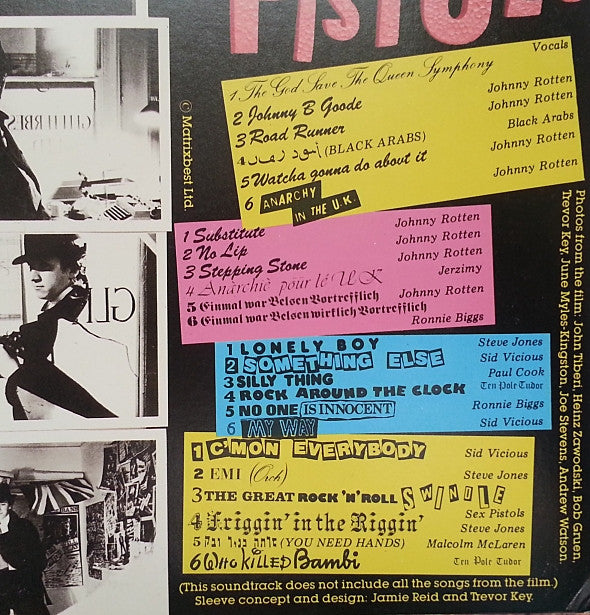 PISTOL
Vocals
1 The God Save The Queen Symphony
2 Johnny B Goode Johnny Rotten
3 Road Runner Johnny Rotten
4 (BLACK ARABS) Black Arabs
5 Watcha gonna do about it Johnny Rotten
6 ANARCHY IN THE U.K. Johnny Rotten
1 Substitute Johnny Rotten
2 No Lip Johnny Rotten
3 Stepping Stone Johnny Rotten
4 Anarchie pour le UK Jerzimy
5 Einmal war Belsen Vortrefflich Johnny Rotten
6 Einmal war Belsen wirklich Vortrefflich Ronnie Biggs
1 LONELY BOY Steve Jones
2 SOMETHING ELSE Sid Vicious
3 SILLY THING Paul Cook
4 ROCK AROUND THE CLOCK Ten Pole Tudor
5 NO ONE IS INNOCENT Ronnie Biggs
6 MY WAY Sid Vicious
1 C'MON EVERYBODY Sid Vicious
2 EMI (Orch) Steve Jones
3 THE GREAT ROCK 'N' ROLL SWINDLE
4 Friggin' in the Riggin' Sex Pistols
Steve Jones
5 (YOU NEED HANDS) Malcolm McLaren
6 WHO KILLED Bambi Ten Pole Tudor
(This soundtrack does not include all the songs from the film.)
Sleeve concept and design: Jamie Reid and Trevor Key.
© Matrixbest Ltd.
Photos from the film: John Tiberi, Heinz Zawodski, Bob Gruen,
Trevor Key, June Myles-Kingston, Joe Stevens, Andrew Watson.